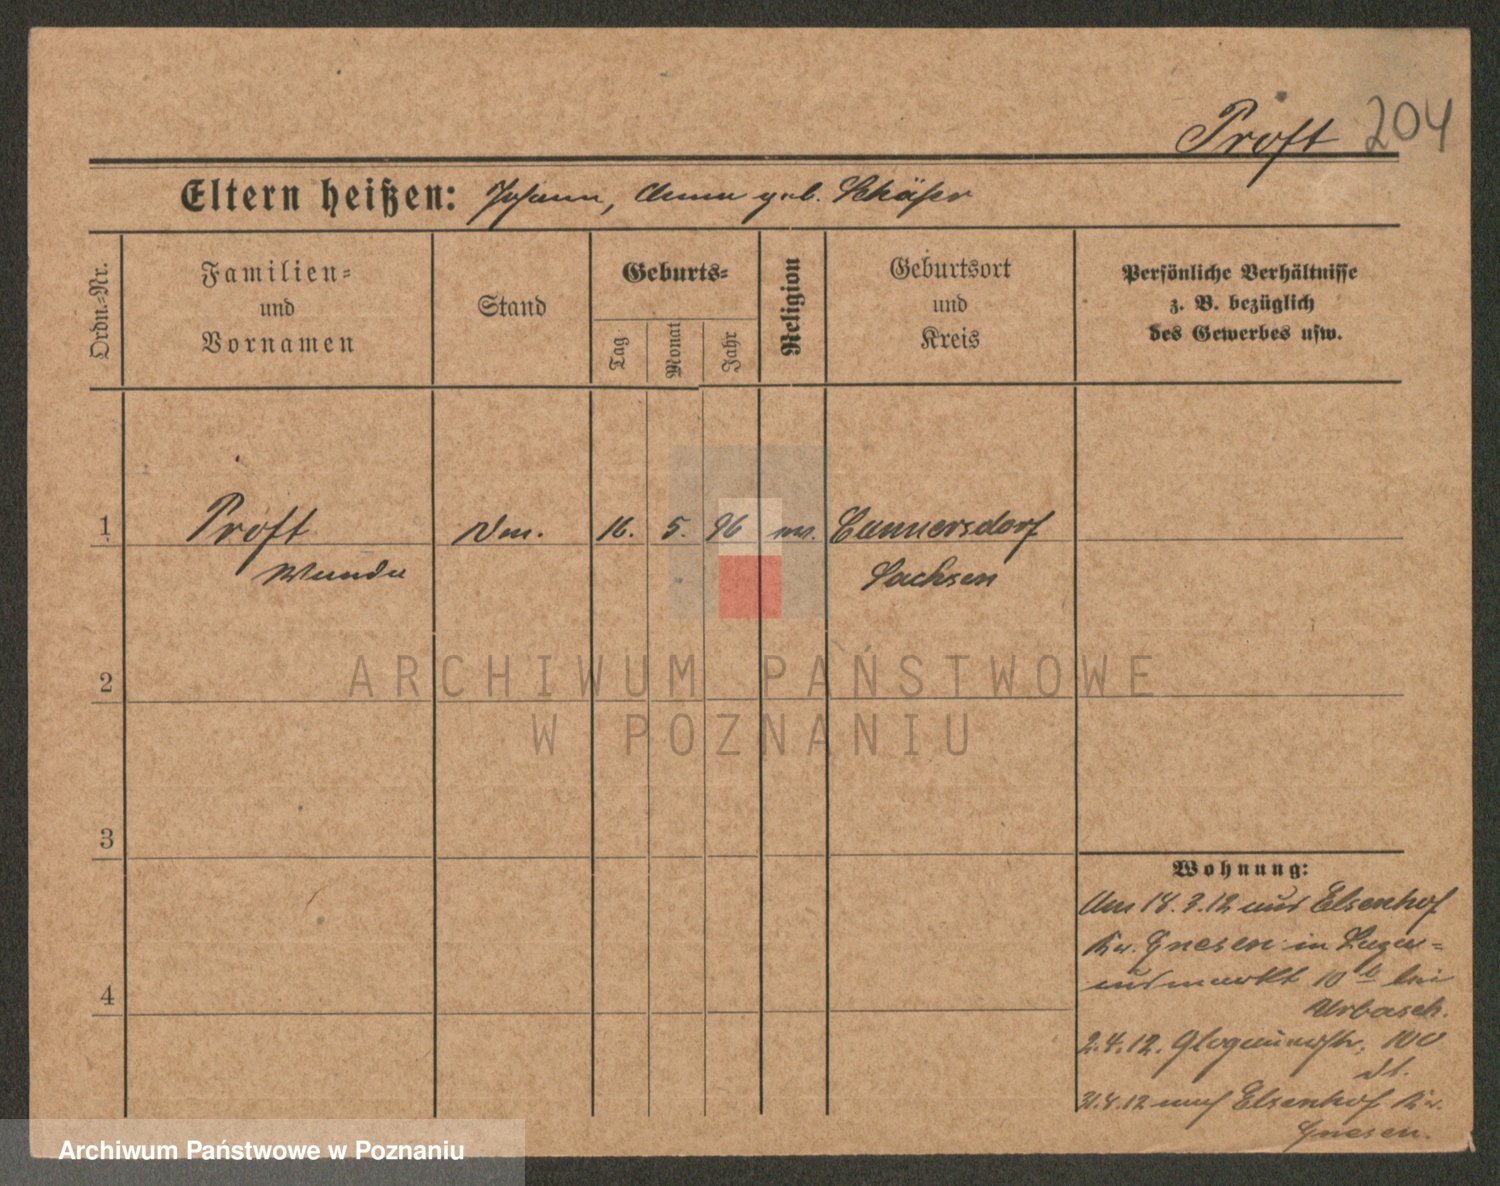 Proft 204
Eltern heißen: Johann, Anna geb. Schäfer
Ordn.-Nr.
Familien-
und
Vornamen
Stand
Geburts-
Tag
Monat
Jahr
Religion
Geburtsort
und
Kreis
Persönliche Verhältnisse
z. B. bezüglich
des Gewerbes usw.
1 Proft 16. 5. 96 Cunnersdorf
Wanda Sachsen
2
ARCHIWUM PAŃSTWOWE
W POZNANIU
3
4
Wohnung:
Am 18.3.12 aus Elsenhof
Kr. Gnesen in
10 b bei
Urbasch.
2.4.12. 100
21.4.12 nach Elsenhof Kr.
Gnesen.
Archiwum Państwowe w Poznaniu